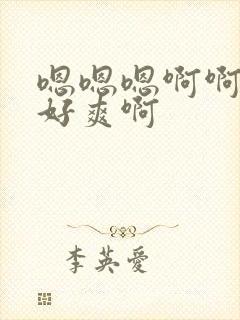 嗯嗯嗯啊啊
好爽啊
李英愛